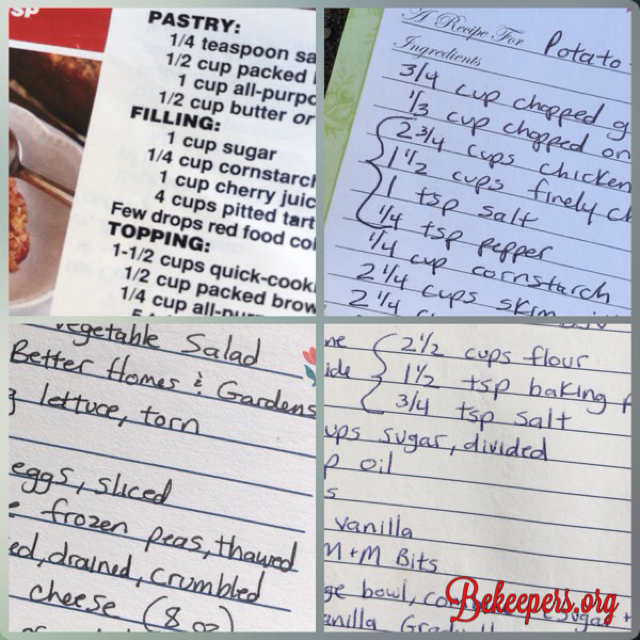 SP
PASTRY:
1/4 teaspoon sa
1/2 cup packed
1 cup all-purpo
1/2 cup butter or
FILLING:
1 cup sugar
1/4 cup cornstarc
1 cup cherry juic
4 cups pitted tart
Few drops red food co
TOPPING:
1-1/2 cups quick-cook
1/2 cup packed brow
1/4 cup all-pur
A Recipe For Potato
Ingredients
3/4 cup chopped g
1/3 cup chopped on
2 3/4 cups chicken
1 1/2 cups finely ch
1 tsp salt
1/4 tsp pepper
1/4 cup cornstarch
2 1/4 cups skim
2 1/4 c
Vegetable Salad
Better Homes & Gardens
lettuce, torn
eggs, sliced
frozen peas, thawed
ed, drained, crumbled
cheese (8 oz)
ne 2 1/2 cups flour
ide 1 1/2 tsp baking p
3/4 tsp salt
ups sugar, divided
p oil
s
vanilla
M+M Bits
ge bowl, co sugar +
anilla Grad
Bekeepers.org